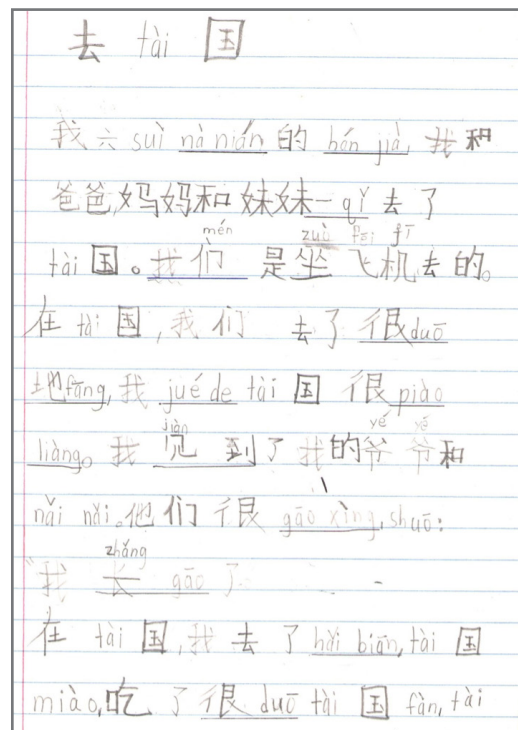 去 tài 国
我六 suì nà nián 的 hán jià, 我和
爸爸,妈妈和妹妹一 qǐ 去了
mén zuò fēi jī
tài 国。我们 是坐飞机去的。
在 tài 国,我们 去了很 duō
地 fāng, 我 jué de tài 国 很 piào
jiàn yé yé
liàng。我 见到了我的爷爷和
nǎi nǎi。他们很 gāo xìng, shuō:
zhǎng
"我 长 gāo 了
在 tài 国,我去了 hǎi biān, tài 国
miào,吃了很 duō tài 国 fàn, tài